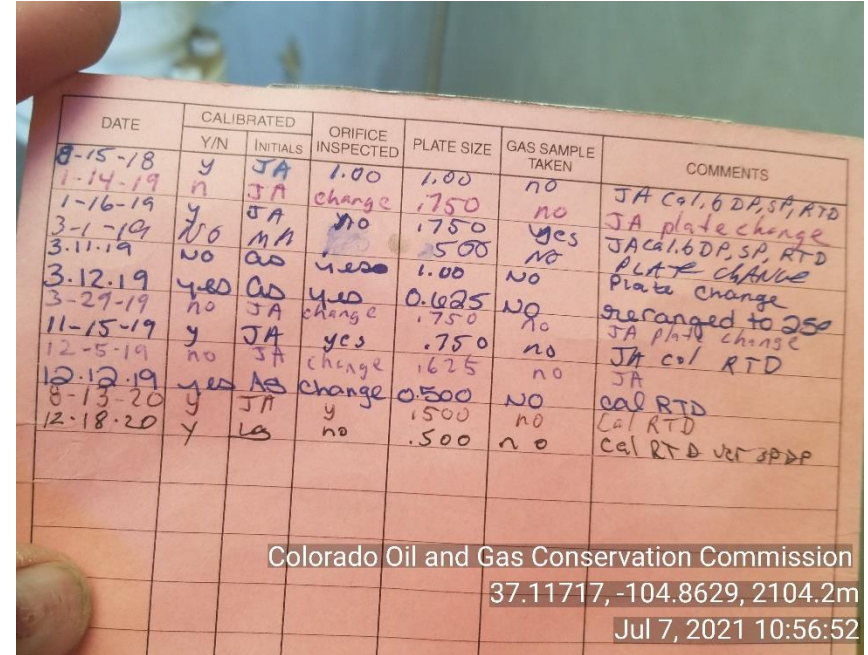 DATE CALIBRATED ORIFICE INSPECTED PLATE SIZE GAS SAMPLE TAKEN COMMENTS
Y/N INITIALS
8-15-18 y JA 1.00 1.00 no JA Cal, 6 DP, SP, RTD
1-14-19 n JA change .750 no JA plate change
1-16-19 y JA no .750 yes JA Cal, 6 DP, SP, RTD
3-1-19 No MA 500 No PLATE CHANGE
3.11.19 NO as yes 1.00 NO Plate change
3.12.19 yes as yes 0.625 NO reranged to 250
3-29-19 no JA change .750 no JA plate change
11-15-19 y JA yes .750 no JA cal RTD
12-5-19 no JA change .625 no JA
12.12.19 yes AS change 0.500 NO cal RTD
8-13-20 y JA y .500 no Cal RTD
12.18.20 Y no .500 no Cal RTD ver SPDP
Colorado Oil and Gas Conservation Commission
37.11717, -104.8629, 2104.2m
Jul 7, 2021 10:56:52